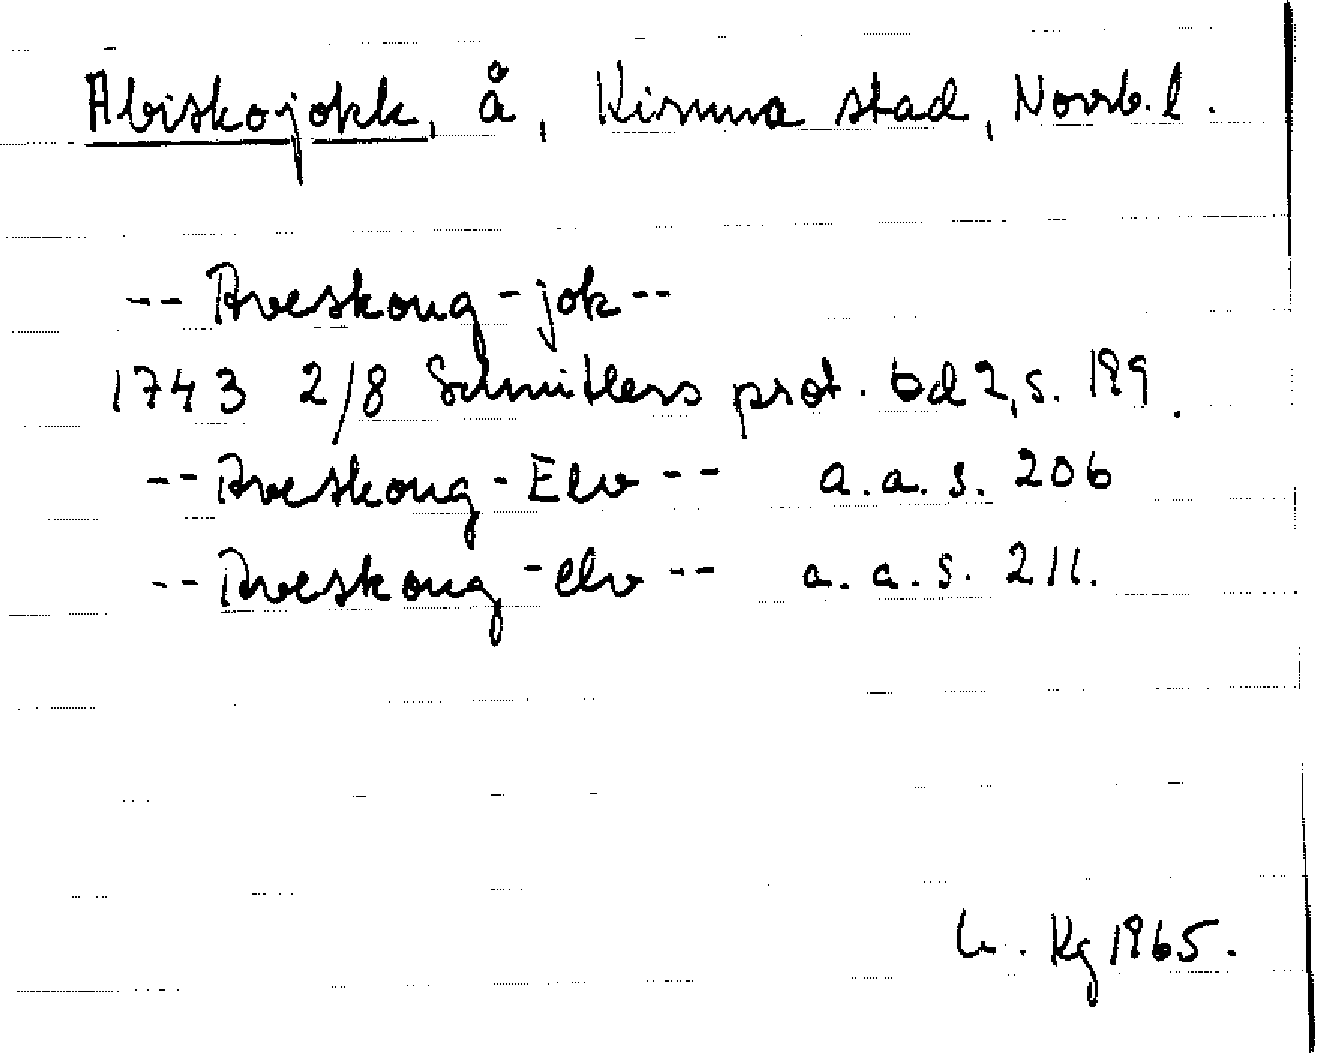 Abiskojokk, å, Kiruna stad, Norrb. l.
-- Aveskoug-jok--
1743 2/8 Schnitlers prot. bd 2, s. 199.
-- Aveskoug-Elv -- a.a.s. 206
-- Aveskoug-elv -- a.a.s. 211.
Kg 1965.